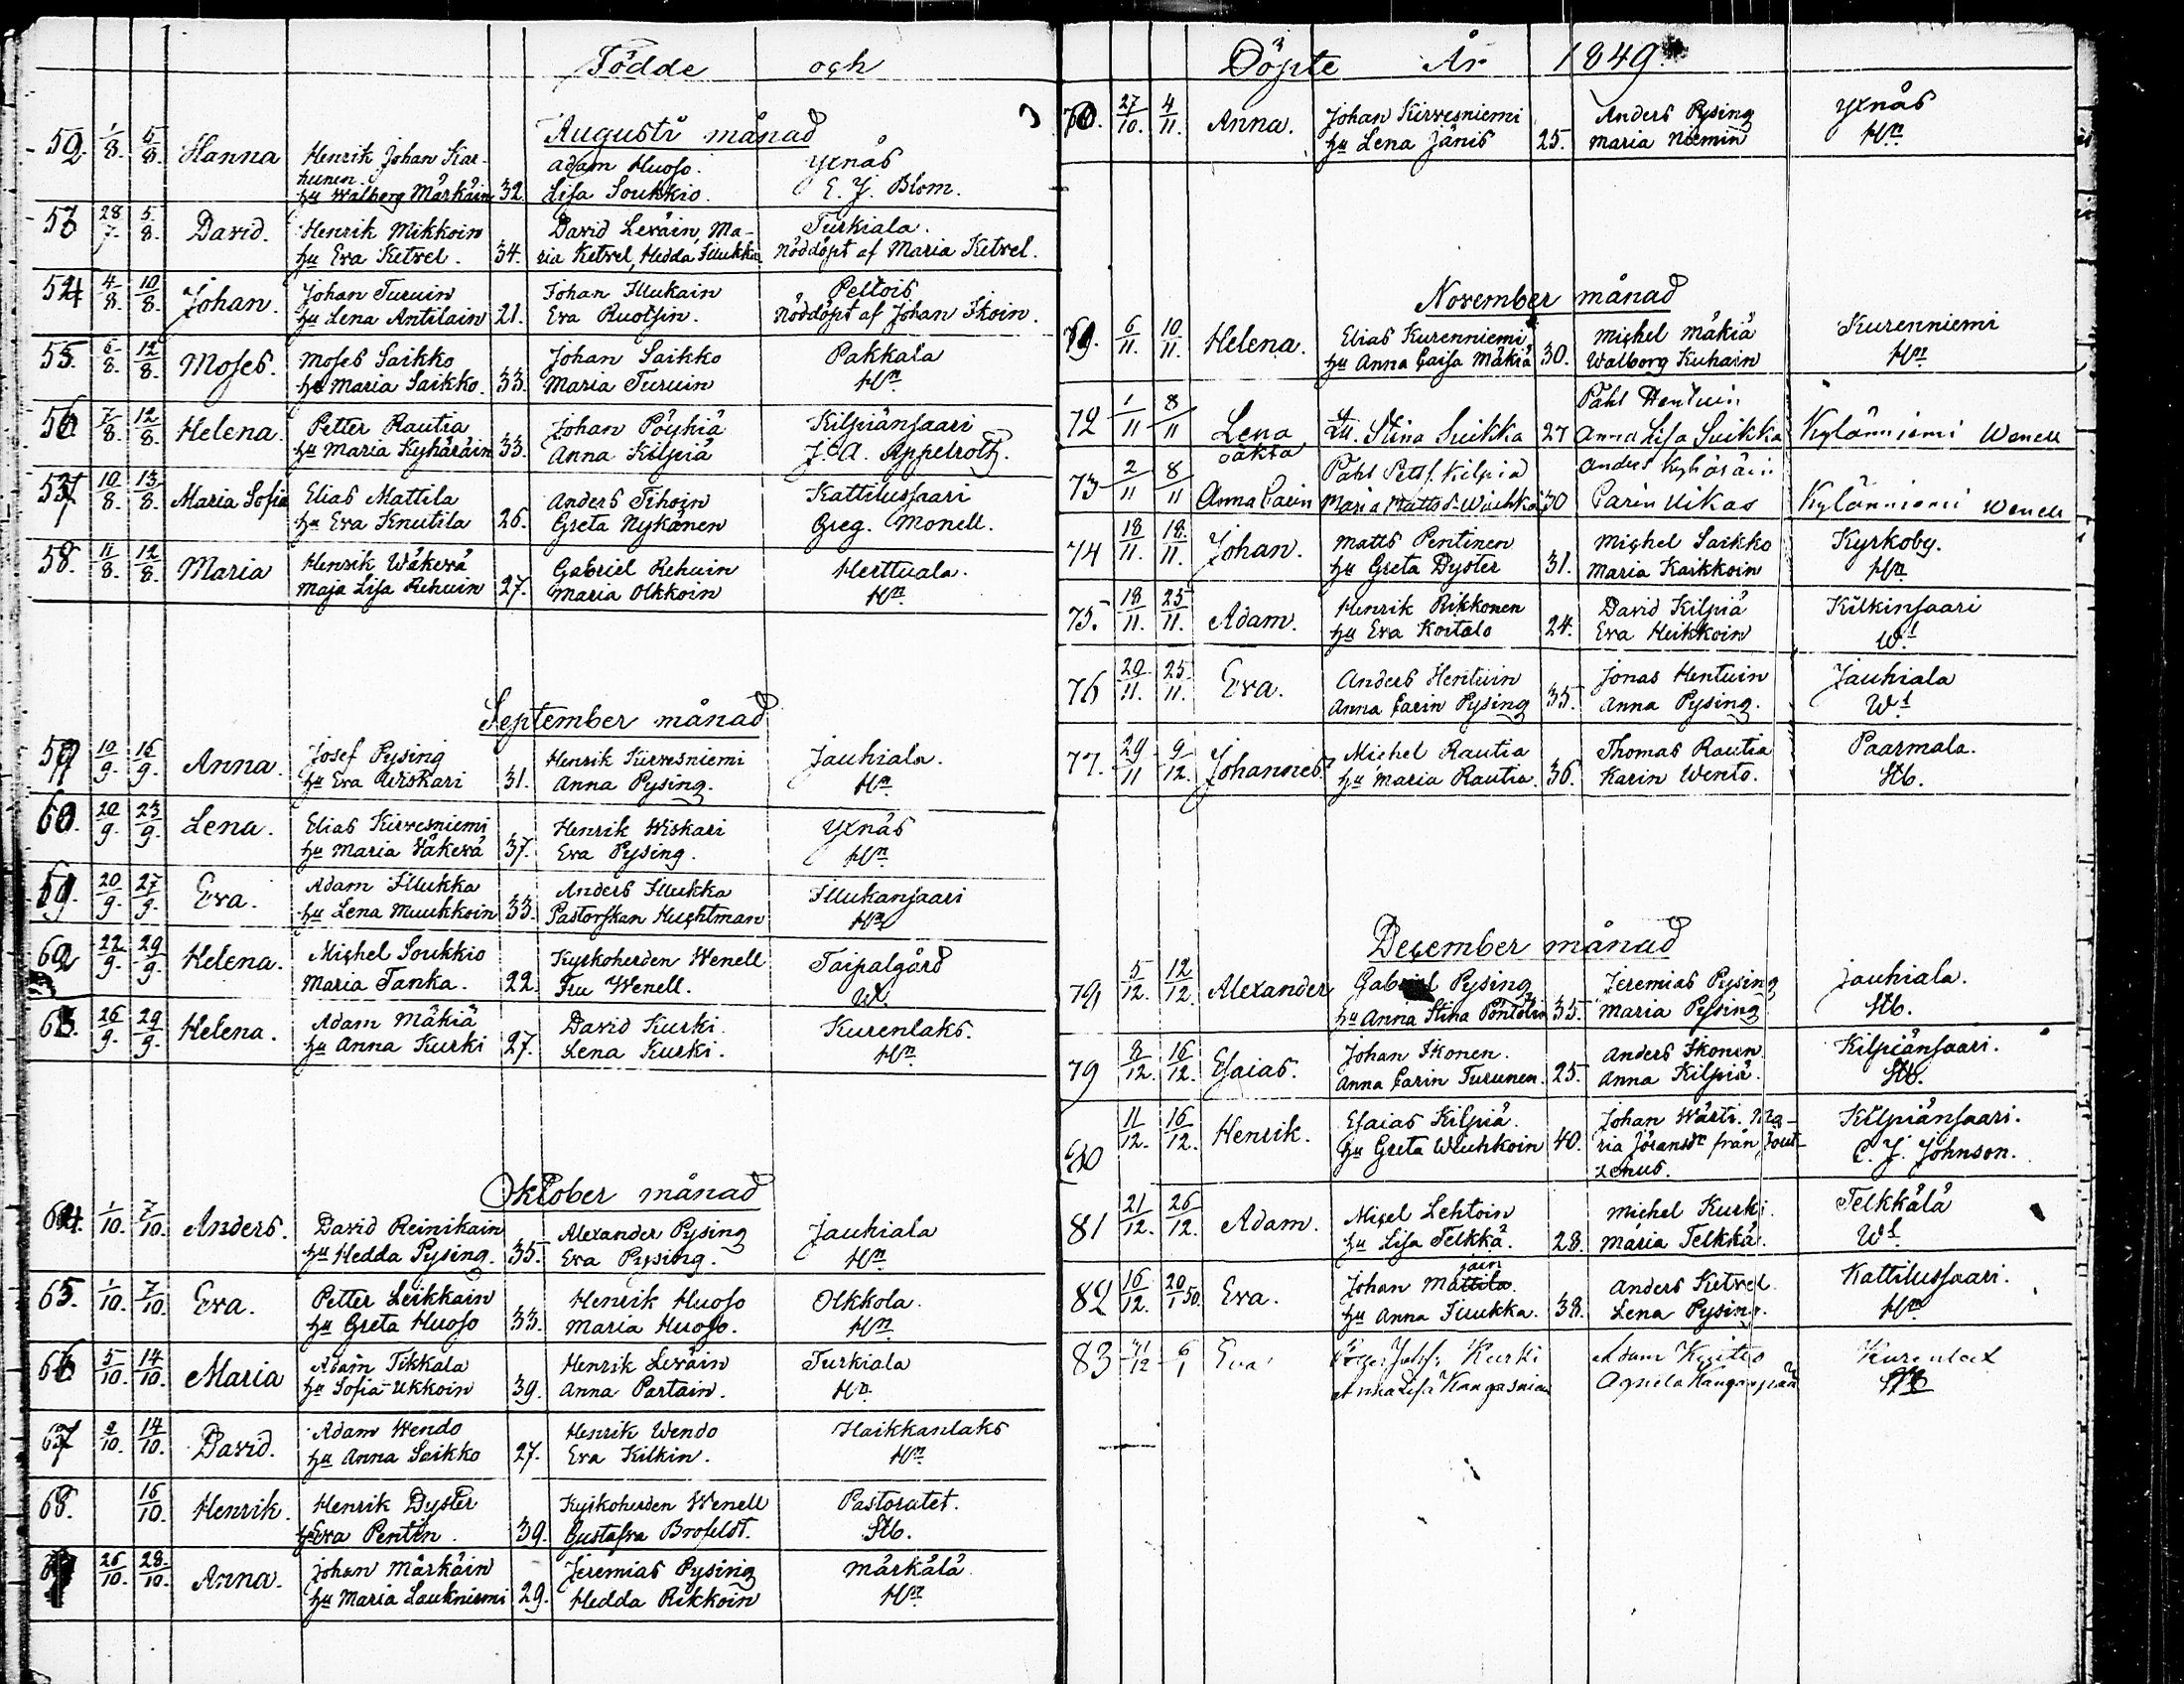 Födde och
Augusti månad
52. 1/8. 5/8. Hanna Henrik Johan Kar- Adam Huoso. Yxnäs
hunen.
hu Walborg Märkäin 32. Lisa Soukkio. E. J. Blom.
53 28/7. 5/8. David. Henrik Mikkoin David Leväin, Ma- Turkiala.
hu Eva Ketvel. 34. ria Ketvel, Hedda Illukka Nöddöpt af Maria Ketvel.
54 4/8. 10/8. Johan. Johan Turuin Johan Illukain Peltois
hu Lena Antilain 21. Eva Ruotsin. Nöddöpt af Johan Ikoin.
55. 6/8. 12/8. Moses. Moses Saikko Johan Saikko Pakkala
hu Maria Saikko. 33. Maria Turuin Hn
56 7/8. 12/8. Helena. Petter Rautia Johan Pöyhiä Kilpiänsaari
hu Maria Kyhäräin 33. Anna Kilpiä J. A. Appelroth.
57 10/8. 13/8. Maria Sofia Elias Mattila Anders Tihoin Kattilussaari
hu Eva Knutila 26. Greta Nykänen Greg. Monell.
58. 11/8. 12/8. Maria Henrik Wäkevä Gabriel Rehuin Herttuala.
Maja Lisa Rehuin 27. Maria Olkkoin Hn
September månad
59 10/9. 16/9. Anna. Josef Pysing Henrik Kirvesniemi Jauhiala.
hu Eva Wiskari 31. Anna Pysing. Hn
60. 20/9. 23/9. Lena. Elias Kirvesniemi Henrik Wiskari Yxnäs
hu Maria Wäkevä 37. Eva Pysing. Hn
20/9. 27/9. Eva. Adam Illukka Anders Illukka Illukansaari
hu Lena Muukkoin 33. Pastorskan Hughtman Hn
62 22/9. 29/9. Helena. Michel Soukkio Kyrkoherden Wenell Taipalgård
Maria Tanka. 22. Fru Wenell. Wl.
63. 26/9. 29/9. Helena. Adam Mäkiä David Kurki. Kurenlaks.
hu Anna Kurki 27. Lena Kurki. Hn
Oktober månad
64. 1/10. 7/10. Anders. David Reinikain Alexander Pysing Jauhiala
hu Hedda Pysing. 35. Eva Pysing. Hn
65. 1/10. 7/10. Eva. Petter Leikkain Henrik Huoso Olkkola.
hu Greta Huoso 33. Maria Huoso. Hn
66 5/10. 14/10. Maria Adam Tikkala Henrik Leväin Turkiala
hu Sofia Ukkoin 39. Anna Partain. Hn
67 9/10. 14/10. David. Adam Wendo Henrik Wendo Haikkanlaks
hu Anna Saikko 27. Eva Kilkin. Hn
68. 16/10. Henrik. Henrik Dyster Kyrkoherden Wenell Pastoratet.
hu Eva Pentin. 39. Gustafva Brofeldt. Stb.
26/10. 28/10. Anna. Johan Märkäin Jeremias Pysing Märkälä
hu Maria Laukniemi 29. Hedda Rikkoin Hn
Döpte År 1849.
70. 27/10. 4/11. Anna. Johan Kirvesniemi Anders Pysing Yxnäs
hu Lena Jänis 25. Maria Niemin Hn
November månad
6/11. 10/11. Helena. Elias Kurenniemi Michel Mäkiä Kurenniemi
hu Anna Caisa Mäkiä 30. Walborg Kuhain Hn
72 1/11 8/11 Lena Påhl Hentuin
oäkta Stina Suikka 27 Anna Lisa Suikka Kylänniemi Wenell
73 2/11 8/11 Anna Carin Påhl Kilpiä Anders Kyhäräin
Maria Mattsd. Wuohkoi 30 Carin Uikas Kylänniemi Wenell
74 18/11. 18./11. Johan. Matts Pentinen Michel Saikko Kyrkoby.
hu Greta Dyster 31. Maria Kaikkoin Hn
75. 18/11. 25/11. Adam. Henrik Rikkonen David Kilpiä Kilkinsaari
hu Eva Kostalo 24. Eva Heikkoin Wl
76 20/11. 25./11. Eva. Anders Hentuin Jonas Hentuin Jauhiala
Anna Carin Pysing 35. Anna Pysing. Wl
77. 29/11 9/12. Johannes. Michel Rautia Thomas Rautia Paarmala.
hu Maria Rautia. 36. Karin Wento. Stb.
December månad
5/12. 12/12. Alexander Gabriel Pysing Jeremias Pysing Jauhiala.
hu Anna Stina Pöntelin 35. Maria Pysing Stb.
79 8/12. 16/12. Esaias. Johan Ikonen. Anders Ikonen. Kilpiänsaari.
Anna Carin Turunen. 25. Anna Kilpiä. Stb.
80 11/12. 16/12. Henrik. Esaias Kilpiä. Johan Wärti. Ma- Kilpiänsaari.
hu Greta Wuohkoin 40. ria Jöransdr från Jout- C. J. Johnson.
zenus.
81 21/12. 26/12. Adam. Michel Lehtoin Michel Kurki. Telkkälä
hu Lisa Telkkä. 28. Maria Telkkä. Wl
82 16/12. 20/1 50. Eva. Johan Mattila jäin Anders Ketvel. Kattilussaari.
hu Anna Iluukka. 38. Lena Pysing. Hn
83 /12 6/1 Eva Kurki Adam Kurenlax
Anna Lisa Kangasniem Agneta Kangaspää Stb